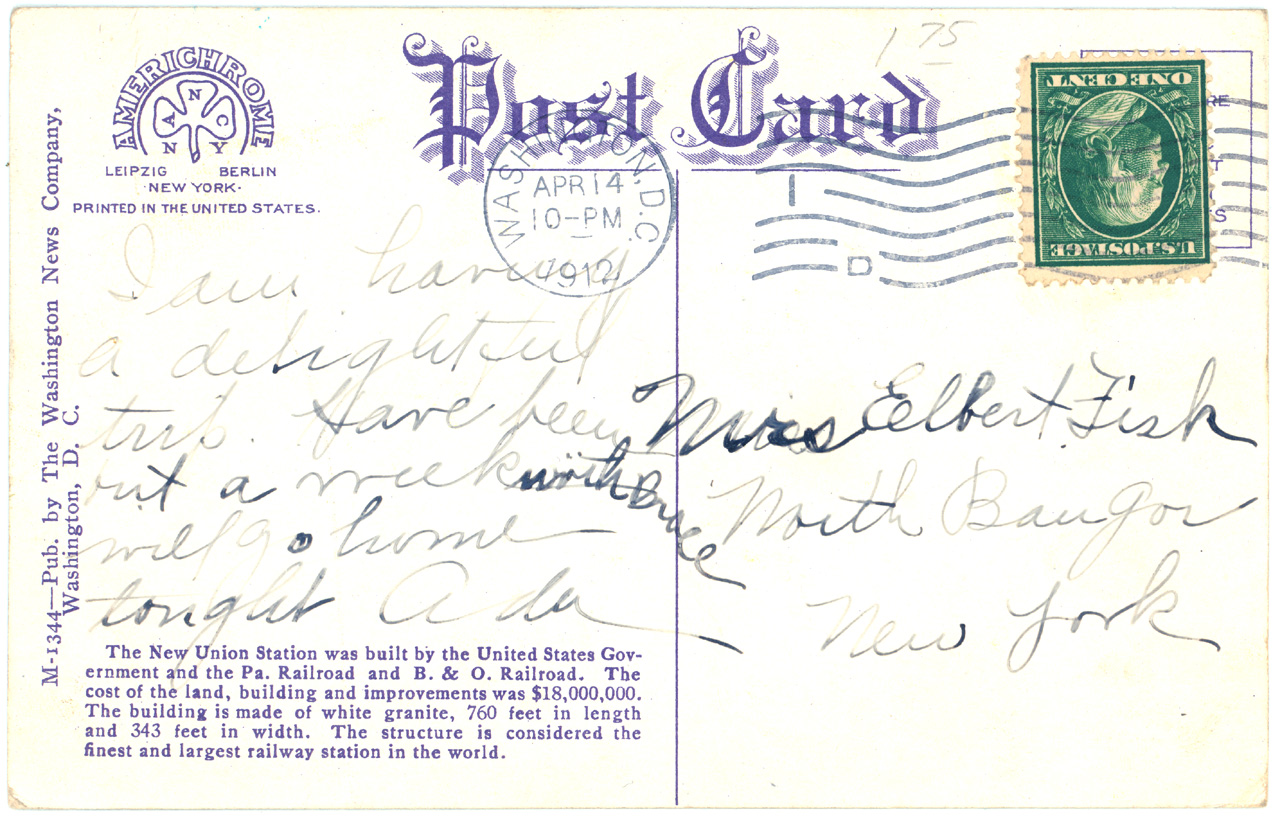 1 75
Post Card
AMERICHROME
A N N C N Y
LEIPZIG BERLIN
·NEW YORK·
PRINTED IN THE UNITED STATES.
M-1344—Pub. by The Washington News Company,
Washington, D. C.
WASHINGTON, D.C.
APR 14
10-PM
1912
1
D
ONE CENT
U.S. POSTAGE
I am having
a delightful
trip. Have been
but a week with Bruce
will go home
tonight Ada
Mrs Elbert Fisk
North Bangor
New York
The New Union Station was built by the United States Gov-
ernment and the Pa. Railroad and B. & O. Railroad. The
cost of the land, building and improvements was $18,000,000.
The building is made of white granite, 760 feet in length
and 343 feet in width. The structure is considered the
finest and largest railway station in the world.